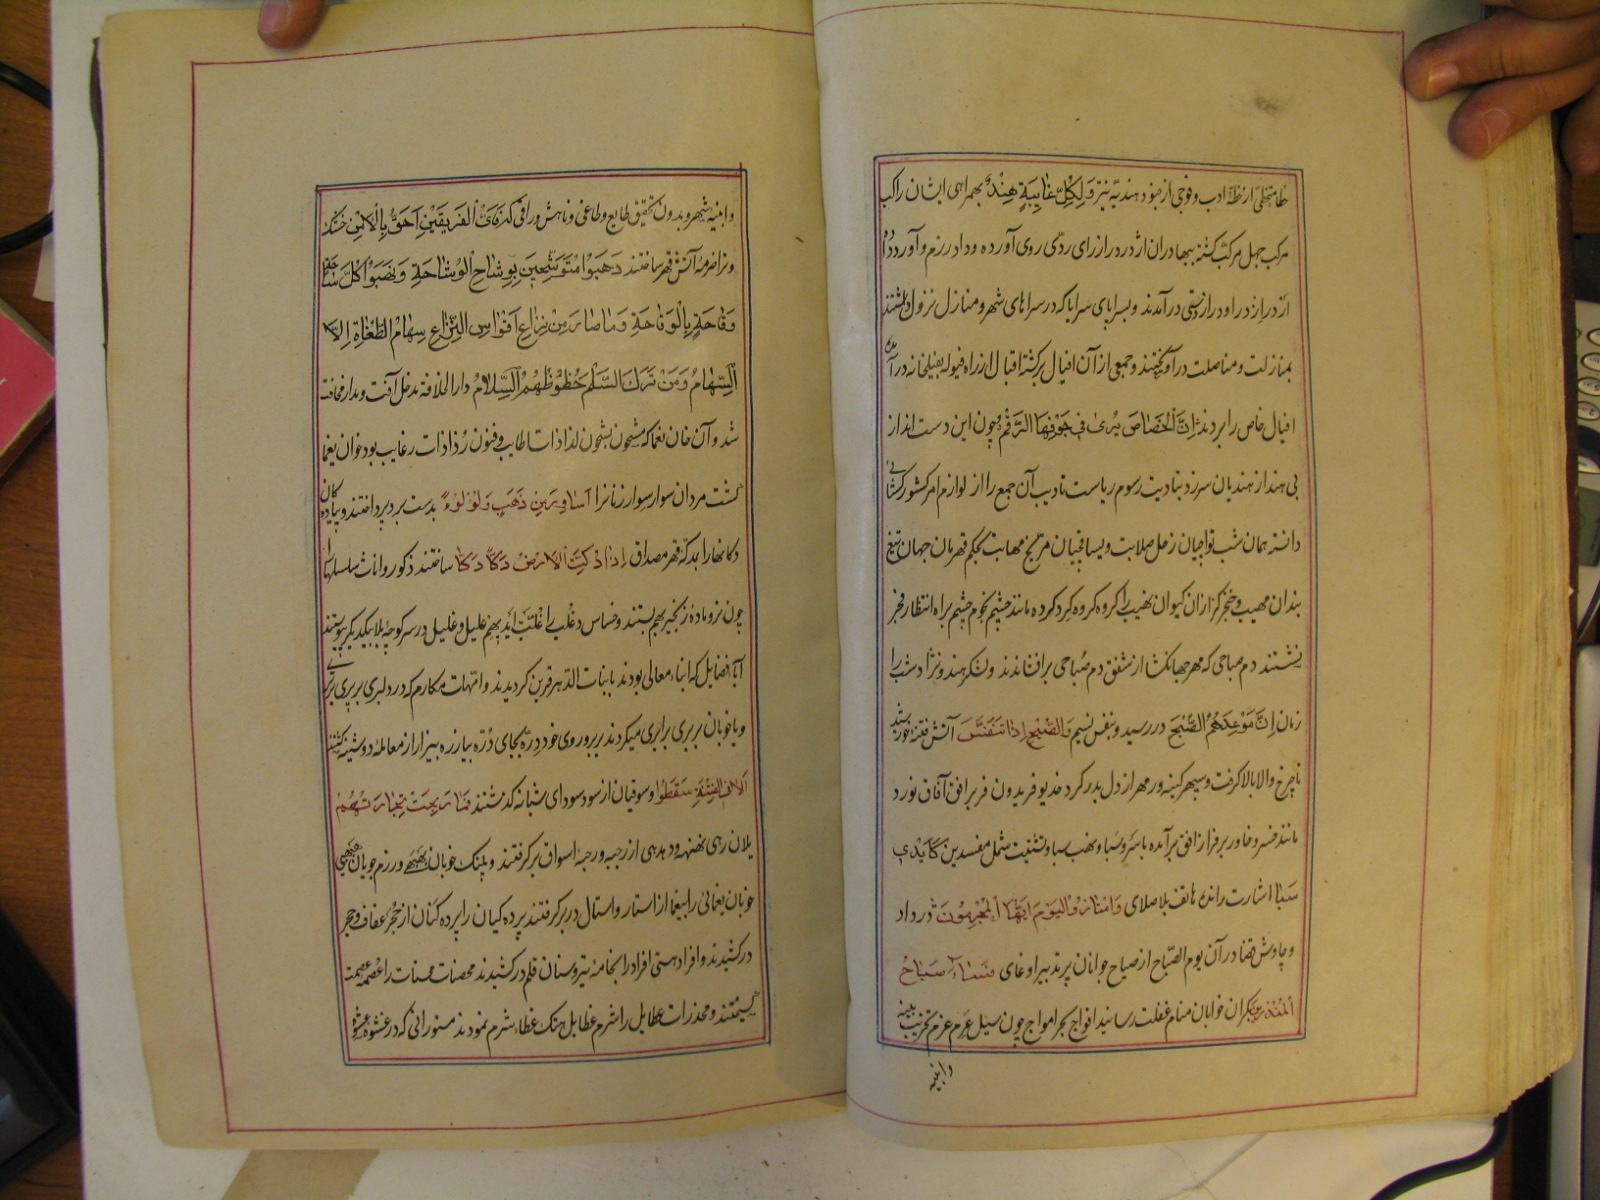 طا متخطّی از خطهٔ ادب و فوجی از جنود هندیّه نیز و لِکلِّ غایبَةٍ هِندٌ بهمراهی ایشان راکب
مرکب جهل مرکب کشته بهادران اژدر در از رای ردّی روی آورده و داد رزم و آورد
از در از در او در از دستی درآمدند و بسراپای سرایا که در سراهای شهر و منازل نزول داشتند
بمنازلت و مناصلت درآویختند و جمعی از آن افیال برکشته اقبال از راه فیوله بفیلخانه درآمده
افیال خاص را بردند اِنَّ الخَصاصَ یُری فی جَوفِهَا الرَّقَمُ چون این دست انداز
بی هنداز هندیان سرزد بتادیت رسوم ریاست تادیب آن جمع را از لوازم امر کشورکشائی
دانسته همان شب تواچیان زحل صلابت و یساقچیان مریخ مهابت بحکم قهرمان جهان تیغ
بندان مهیب و خنجرگزاران کیوان نهیب را کروه کروه کرد کرده مانند چشم نجوم چشم براه انتظار فجر
نشستند دم صباحی که مهر جهانکشا از شفق دم صباحی برافشاندند و لشکر هندو نژاد شب را
زمان اِنَّ مَوعِدَهُمُ الصُّبحُ در رسید و بتنفس نسیم وَالصُّبحِ اِذا تَنَفَّسَ آتش فتنهٔ خورشید
تا چرخ والا بالا گرفت و سپهر کینه ور مهر از دل بدر کرد خدیو فریدون فر بر افق آفاق نورد
مانند خسرو خاور بر فراز افق برآمده باسر و سبا و نهب سبا و تشتیت شمل مفسدین کَاَیدِی
سَبا اشارت رانده هاتف بلا صلای وَامتازُوا الیَومَ اَیُّهَا المُجرِمُونَ در داد
و چاوش قضا در آن یوم الصّباح از صیاح جوانان پرتدبیر اوغای فَسآءَ صَباحُ
المُنذَرینَ بکران خوابان منام غفلت رسانید افواج بحر امواج چون سیل عرم عزم تخریب بینه
وابنیه
وابنیه شهر و بدون تحقیق طایع و طاعی و ناهش و راقی که فَاَیُّ الفَریقَینِ اَحَقُّ بِالاَمنِ خشک
و تر اضرمه آتش قهر ساختند ذَهَبوا مُتَوَشِّحینَ بِوِشاحِ الوَشاحَةِ وَ نَصَبوا کُلَّ ساحَةٍ
وَقاحَةٍ بِالوَقاحَةِ وَ ما صارَ مِن نِزاعِ اَقواسِ النِّزاعِ سِهامُ الطُّغاةِ اِلاّ
السِّهامُ وَ مَن تَرَکَ السَّلَمَ حُظوظُهُمُ السِّلامُ دار الخلافه مدخل آفت و مدار مخافت
شد و آن خان نعما که مشحون بشحون لذاذات طایب و فنون رُذاذات رغایب بود خوان یغما
کشت مردان سوار سوار زنانرا اَساوِرَ مِن ذَهَبٍ وَ لُؤلُؤً بدست برد پرداختند و پیادکان
دکانها را بدکه قهر مصداق اِذا دُکَّتِ الاَرضُ دَکًّا دَکًّا ساختند ذکور و اناث سلسلها را
چون نر و ماده زنجیر بهم بستند و خساس دغلب را غُلَّت اَیدِیهِم علیل و غلیل در سر کوچهٔ بلا بیکدیکر پیوستند
آباء فضایل که ابناء معالی بودند با بنات الدّهر قرین کردیدند و امّهات مکارم که در دلبری بر پری برتری
و با خوبان بربری برابری میکردند بر بر و روی خود دِرّه بجای دُرّه بیازره بیزار از معامله دوشینه کشتند
اَلا فِی الفِتنَةِ سَقَطُوا و سوقیان از سود سودای شبانه گذشتند فَما رَبِحَت تِجارَتُهُم
یلان رهی نهنهه و دهدهی از رجبه و رحبهٔ اسواق برگرفتند و پلنک خوبان بَهبَهی و رزم جویان
خوبان یغمائی را بیغما از استار و استال در برگرفتند پرده کیان را پرده کنان از حُجُرِ عفاف و حجر
درکشیدند و افراد هستی افراد را بخامهٔ تیر و سنان قلم درکشیدند محصنات محسنات را عُصم عصمت
کسیختند و مخدرات عطابل را شرم عطابل بهتک غطاء شرم نمودند مستورانی که در غشوه عشوه